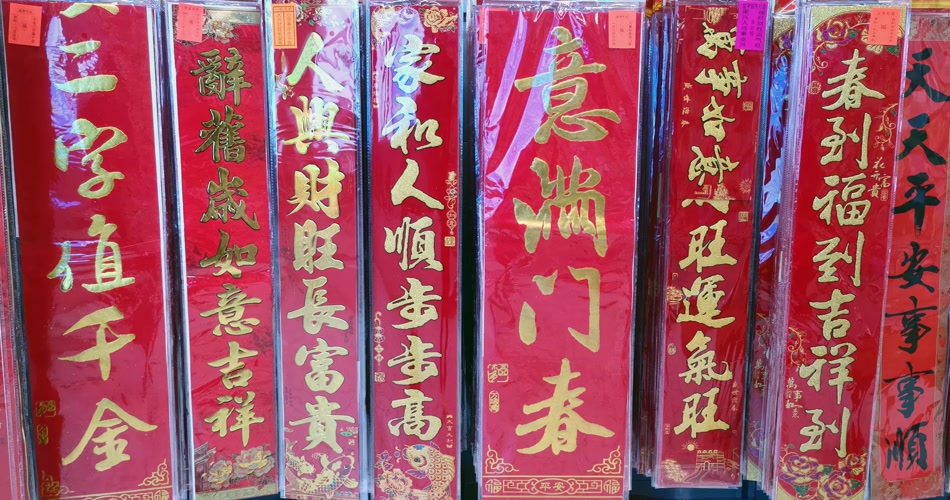 二字值千金
辭舊歲如意吉祥
人興財旺長富貴
家和人順步步高
意滿门春
平安
旺運氣旺
春到福到吉祥到
花开富貴
萬事如意
天天平安事事順